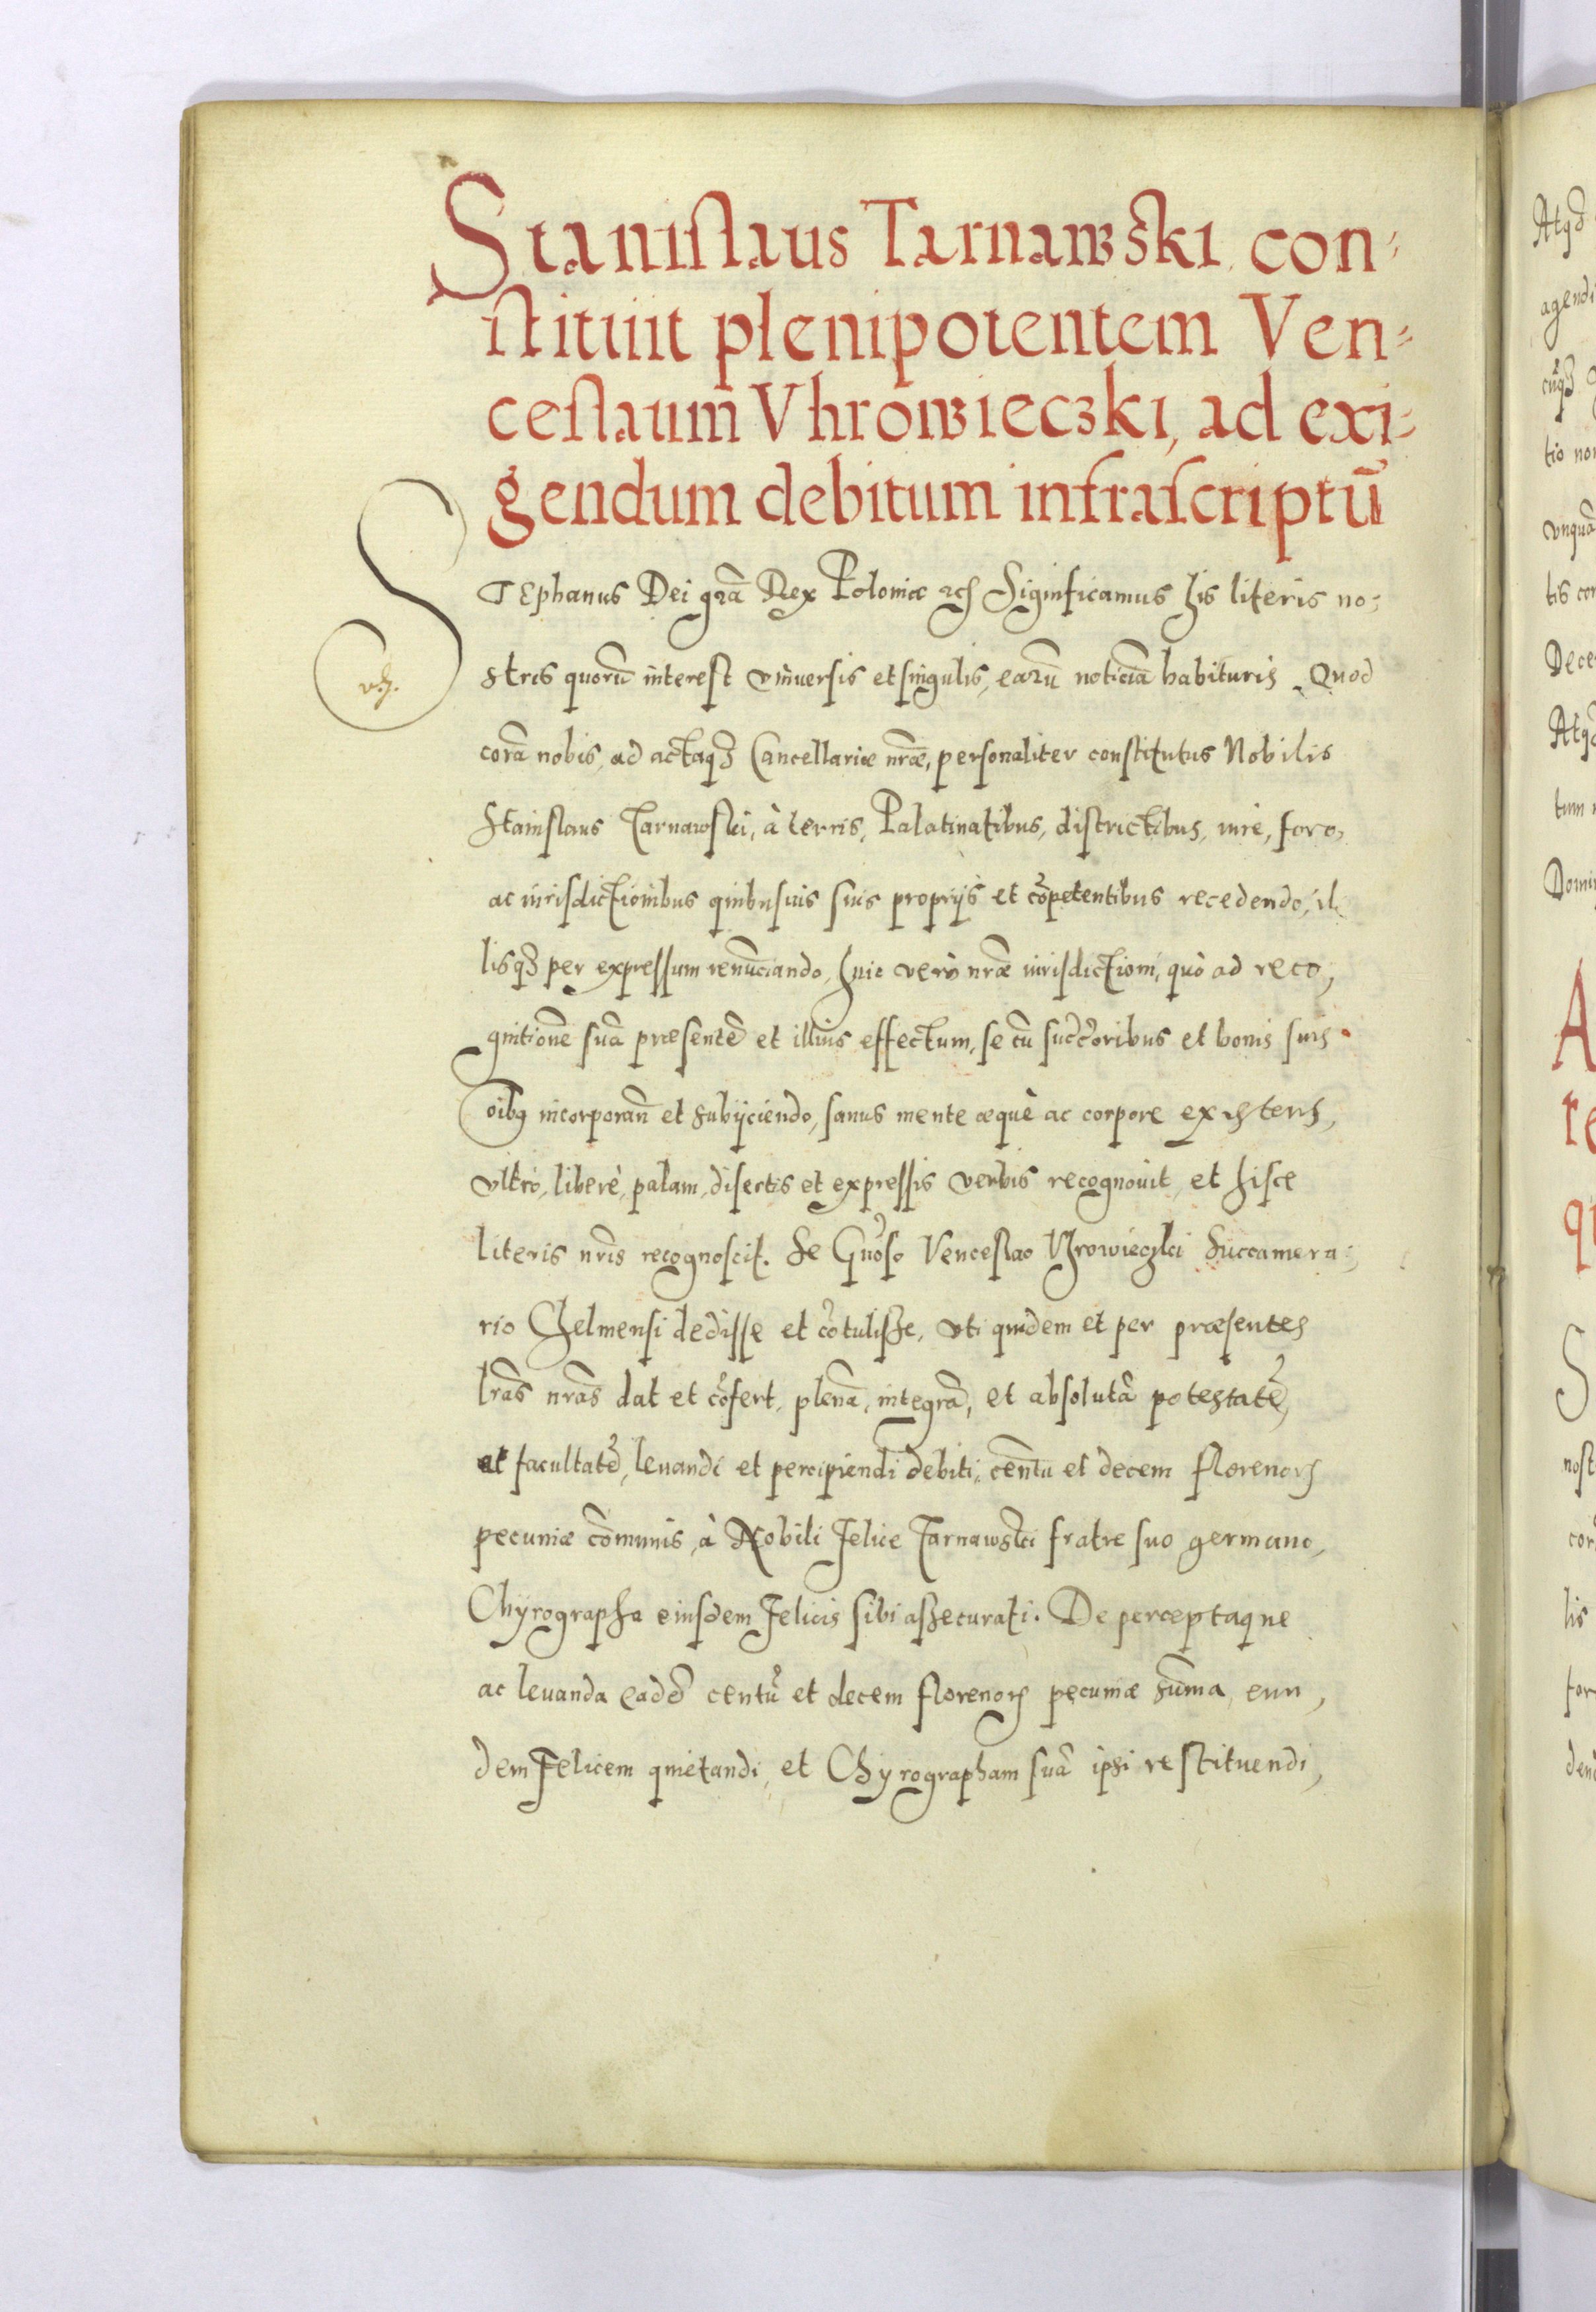 Stanislaus Tarnawski con⸗
stituit plenipotentem Ven⸗
ceslaum Vhrowieczki, ad exi⸗
gendum debitum infrascriptū
STEphanus Dei grā Rex Poloniæ etc Significamus his literis no⸗
stris quorū interest vniuersis et singulis, earū noticiā habituris. Quod
corā nobis, ad actaqꝫ Cancellariæ nr̄æ, personaliter constitutus Nobilis
Stanislaus Tarnawski, à terris, Palatinatibus, districtibus, iure, foro,
ac iurisdictionibus quibusuis suis proprijs et cōpetentibus recedendo, il⸗
lisqꝫ per expressum renūciando, huic verò nr̄æ iurisdictioni, quò ad reco⸗
gnitionē suā præsentē et illius effectum, se cū succ̄oribus et bonis suis
oībꝰ incorporan̄ et subijciendo, sanus mente æquè ac corpore existens,
vltrò, liberè, palam, disertis et expressis verbis recognouit, et hisce
literis nr̄is recognoscit. Se Gn̄oso Venceslao Vhrowieczki Succamera⸗
rio Chelmensi dedisse et cōtulisse, vti quidem et per præsentes
lr̄as nr̄as dat et cōfert, plenā, integrā, et absolutā potestatē,
et facultatē, leuandi et percipiendi debiti, centū et decem florenorꝫ
pecuniæ cōmunis, à Nobili Felice Tarnawski fratre suo germano,
Chyrographa eiusdem Felicis sibi assecurati. De perceptaque
ac leuanda eadē centū et decem florenorꝫ pecuniæ sūma, eun⸗
dem Felicem quietandi, et Chyrographam suā ipsi restituendi,